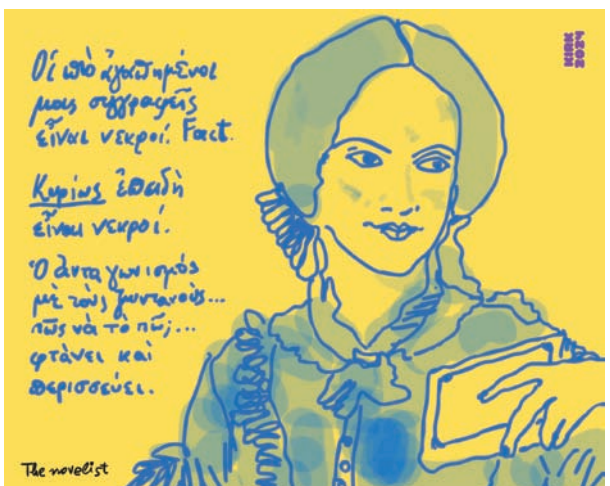 Οἱ πιὸ ἀγαπημένοι
μας συγγραφεῖς
εἶναι νεκροί. Fact.
Κυρίως ἐπειδὴ
εἶναι νεκροί.
Ὁ ἀνταγωνισμὸς
μὲ τοὺς ζωντανοὺς...
πῶς νὰ τὸ πῶ;...
φτάνει καὶ
περισσεύει.
The novelist
ΚΙΩΧ
2024